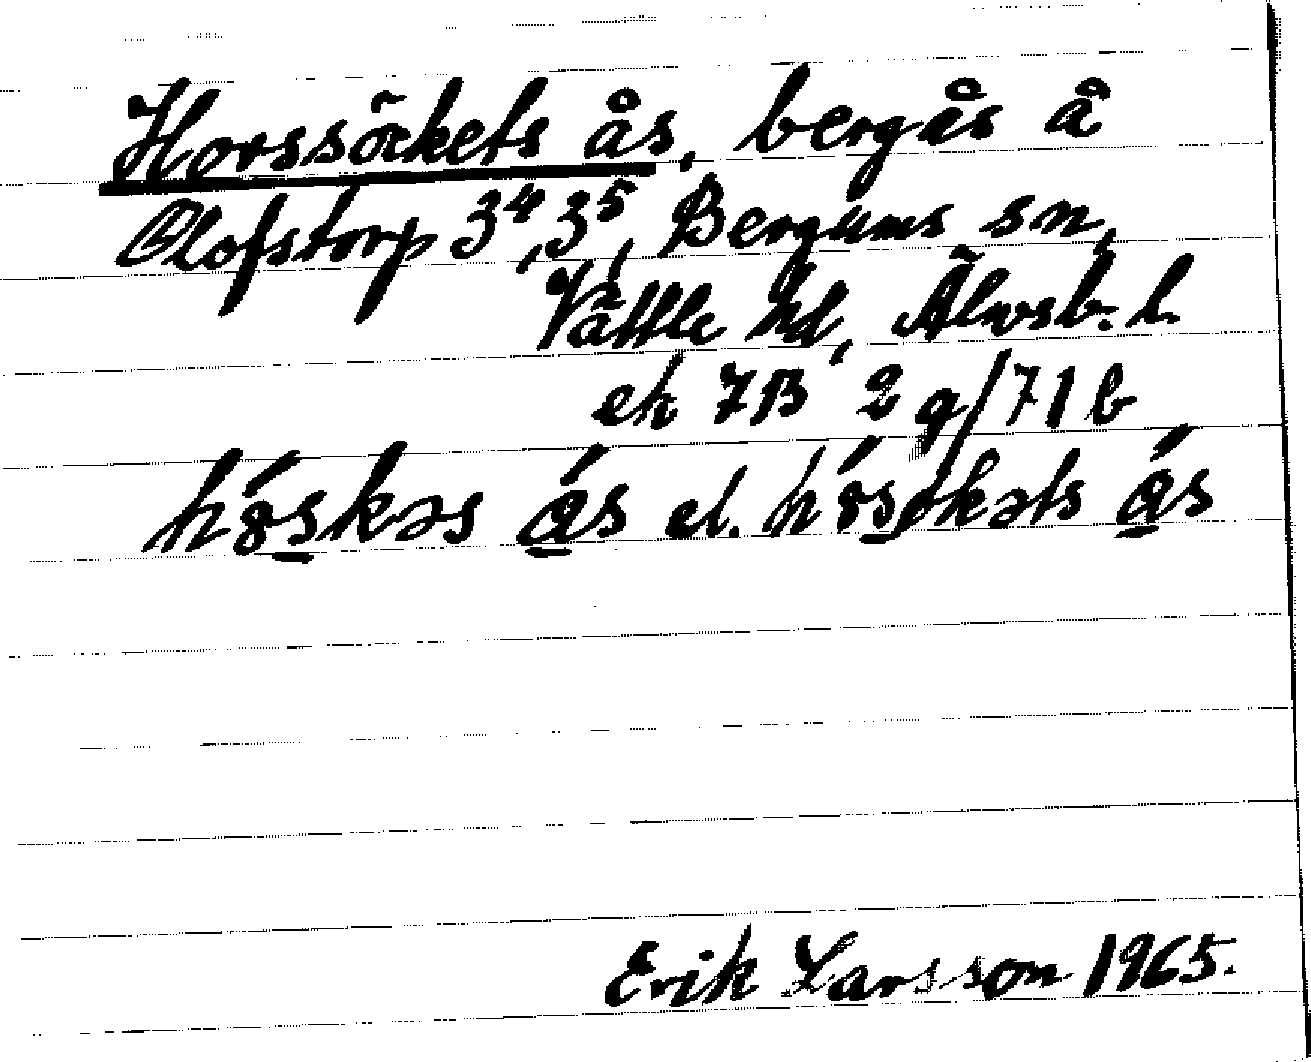 Horssökets ås, bergås å
Olofstorp 3⁴, 3⁵, Bergums sn,
Vättle hd, Älvsb. l.
ek 7B 2g/71 b
hó̱skəs á̱s el. hó̱søkəts á̱s
Erik Larsson 1965.